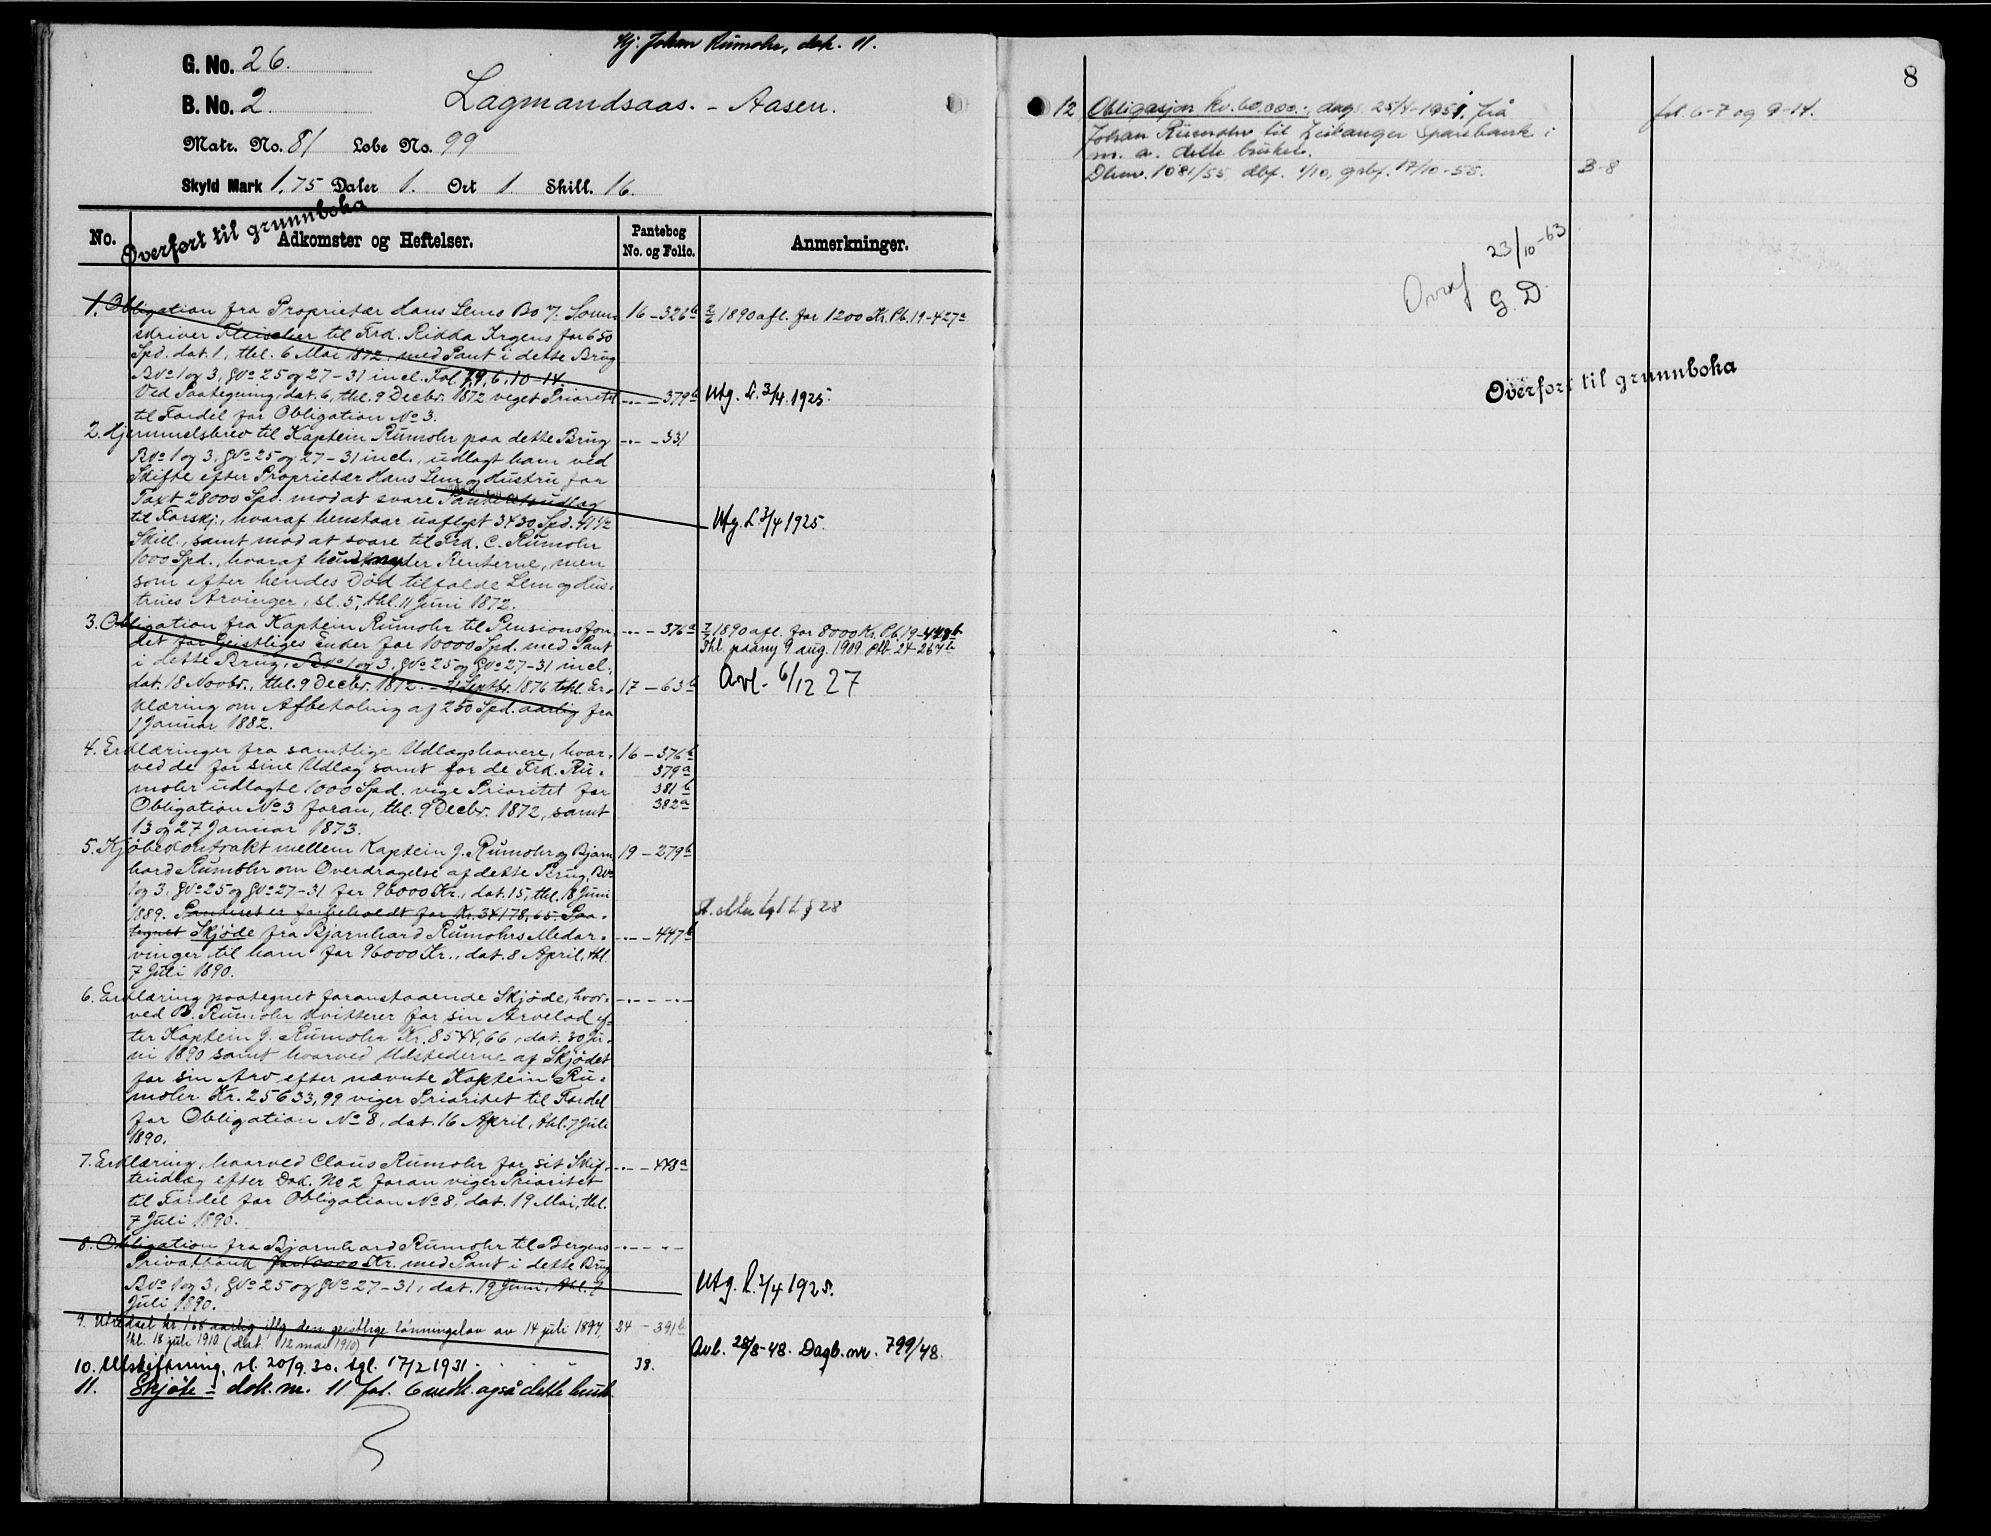 Hj. Johan Rumohr, dok. 11.
G. No. 26.
B. No. 2. Lagmandsaas. - Aasen.
Matr. No. 81 Løbe No. 99
Skyld Mark 1,75 Daler 1. Ort 1 Skill. 16.
Overført til grunnboka
No. Adkomster og Heftelser. Pantebog No. og Folio. Anmerkninger.
1. Obligation fra Proprietær Hans Lems Bo v/ Soren- 16 - 326b 2/6 1890 afl. for 1200 Kr. Pb. 19-427a
skriver Fleischer til Frk. Rikka Krgens for 650
Spd. dat. 1, thl. 6 Mai 1872, med Pant i dette Brug
BNo 1 og 3, GNo 25 og 27-31 incl. Fol. 7, 9, 6, 10-14.
Ved Paategning, dat. 6, thl. 9 Decbr. 1872 veget Prioritet -"- - 379b Utg. L. 3/4 1925.
til Fordel for Obligation No 3.
2. Hjemmelsbrev til Kaptein Rumohr paa dette Brug -"- - 331
BNo 1 og 3, GNo 25 og 27-31 incl., udlagt ham ved
Skifte efter Proprietær Hans Lem og Hustru for
Taxt 28000 Spd. mod at svare Panteretsudlæg
til Forskj., hvoraf henstaar uaflyst 3430 Spd. 41 1/2 Utg. L 3/4 1925.
Skill., samt mod at svare til Frk. C. Rumohr
1000 Spd., hvoraf hun nyder Renterne, men
som efter hendes Død tilfalde Lem og Hus-
trues Arvinger, sl. 5, thl. 11 Juni 1872.
3. Obligation fra Kaptein Rumohr til Pensionsfon- -"- - 376a 7/7 1890 afl. for 8000 Kr. Pb. 19-448b
det for Geistliges Enker for 10000 Spd. med Pant Thl. paany 9 aug. 1909 Pb 24-267b
i dette Brug, BNo 1 og 3, GNo 25 og GNo 27-31 incl.,
dat. 18 Novbr., thl. 9 Decbr. 1872. - 21 Septbr. 1876 thl. Er- 17 - 63b Avl. 6/12 27
klæring om Afbetaling af 250 Spd. aarlig fra
1 Januar 1882.
4. Erklæringer fra samtlige Udlægshavere, hvor- 16 - 376b
ved de for sine Udlæg samt for de Frk. Ru- 379a
mohr udlagte 1000 Spd. vige Prioritet for 381b
Obligation No 3 foran, thl. 9 Decbr. 1872, samt 382a
13 og 27 Januar 1873.
5. Kjøbekontrakt mellem Kaptein J. Rumohr og Bjørn- 19 - 279b
hard Rumohr om Overdragelse af dette Brug, BNo
1 og 3, GNo 25 og GNo 27-31 for 96000 Kr., dat. 15, thl. 18 Juni
1889. Panteret er forbeholdt for Kr. 34178,65. Paa- Sl. etter tgl. l. § 28
tegnet Skjøde fra Bjørnhard Rumohrs Medar- -"- - 447b
vinger til ham for 96000 Kr., dat. 8 April, thl.
7 Juli 1890.
6. Erklæring paategnet foranstaaende Skjøde, hvor- -"- - -"-
ved B. Rumohr kvitterer for sin Arvelod ef-
ter Kaptein J. Rumohr Kr. 8544,66, dat. 30 Ju-
ni 1890 samt hvorved Udstederne af Skjødet
for sin Arv efter nævnte Kaptein Ru-
mohr Kr. 25633,99 viger Prioritet til Fordel
for Obligation No 8, dat. 16 April, thl. 7 Juli
1890.
7. Erklæring, hvorved Claus Rumohr for sit Skif- -"- - 448a
teudlæg efter Dok. No 2 foran viger Prioritet
til Fordel for Obligation No 8, dat. 19 Mai, thl.
7 Juli 1890.
8. Obligation fra Bjørnhard Rumohr til Bergens -"- - -"-
Privatbank for 10000 Kr. med Pant i dette Brug
BNo 1 og 3, GNo 25 og GNo 27-31, dat. 19 Juni, thl. 7 Utg. L. 3/4 1925.
Juli 1890.
9. Utredsel kr. 1,68 aarlig iflg. den geistlige lønningslov av 14 juli 1897, 24 - 391b
thl. 18 juli 1910 (dat. 12 mai 1910) Avl. 28/8-48. Dagb. nr. 799/48.
10. Utskiftning, sl. 20/9.30. tgl. 17/2 1931. 38.
11. Skjøte - dok. nr. 11 fol. 6 vedk. også dette bruk.
8
12 Obligasjon kr. 60.000.-, dags. 25/4-1951, frå fol. 6-7 og 9-14.
Johan Rumohr til Leikanger Sparebank i
m. a. dette bruket.
Dbnr. 1081/55, dbf. 1/10, grbf. 17/10-55. B-8
23/10-63
Overf G. D.
Overført til grunnboka